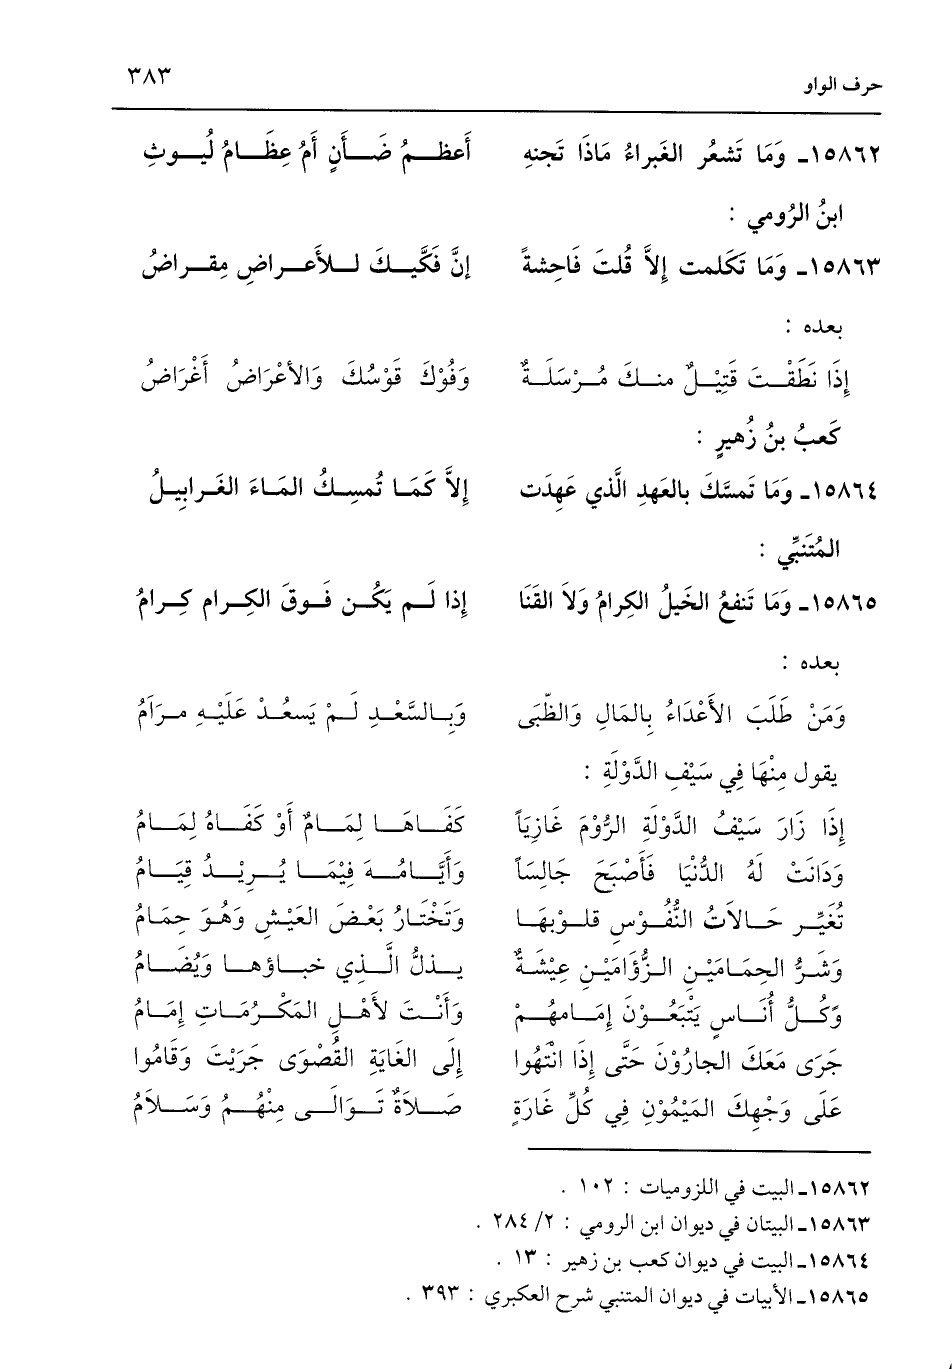 حرف الواو ٣٨٣
١٥٨٦٢ـ وَمَا تَشعُر الغَبراءُ مَاذَا تَجنهِ أَعظـمُ ضَـأنٍ أَمُ عِظَـامُ لُيـوثِ
ابنُ الرُومي :
١٥٨٦٣ـ وَمَا تَكَلمت إلاَّ قُلتَ فَاحِشةً إنَّ فَكَّيـكَ لـلأَعـراضِ مِقـراضُ
بعده :
إِذَا نَطَقْـتَ قَتِيْـلٌ منـكَ مُـرْسَلَـةٌ وَفُوْكَ قَوْسُكَ وَالأعْرَاضُ أَغْرَاضُ
كَعبُ بنُ زُهيرٍ :
١٥٨٦٤ـ وَمَا تَمسَّكَ بالعَهدِ الَّذي عَهِدَت إلاَّ كَمَـا تُمسِـكُ المَـاءَ الغَـرابيـلُ
المُتَنبِّي :
١٥٨٦٥ـ وَمَا تَنفعُ الخَيلُ الكِرامُ وَلاَ القَنَا إذا لَـم يَكُـن فَـوقَ الكِـرام كِـرامُ
بعده :
وَمَنْ طَلَبَ الأَعْدَاءُ بِالمَالِ وَالظّبَى وَبِـالسَّعْـدِ لَـمْ يَسعُـدْ عَلَيْـهِ مـرَامُ
يقول مِنْهَا فِي سَيْفِ الدَّوْلَةِ :
إِذَا زَارَ سَيْفُ الدَّوْلَةِ الرُّوْمَ غَازِيَاً كَفَـاهَـا لِمَـامٌ أَوْ كَفَـاهُ لِمَـامُ
وَدَانَتْ لَهُ الدُّنْيَا فَأَصْبَحَ جَالِسَاً وَأَيَّـامُـهُ فِيْمَـا يُـرِيْـدُ قِيَـامُ
تُغَيِّـر حَـالاَتُ النُّفُـوْسِ قلـوْبهَـا وَتَخْتَارُ بَعْضَ العَيْشِ وَهْوَ حِمَامُ
وَشَرُّ الحِمَـامَيْـنِ الـزُّؤَامَيْـنِ عِيْشَـةٌ يـذلُّ الَّـذِي خبـاؤهـا وَيُضَـامُ
وَكُـلُّ أُنَـاسٍ يَتْبَعُـوْنَ إِمَـامهُـمْ وَأَنْـتَ لأَهْـلِ المَكْـرُمَـاتِ إِمَـامُ
جَرَى مَعَكَ الجارُوْنَ حَتَّى إِذَا انْتَهُوا إِلَى الغَايَةِ القُصْوَى جَرَيْتَ وَقَامُوا
عَلَى وَجْهِكَ المَيْمُوْنِ فِي كُلِّ غَارَةٍ صَـلاَةٌ تَـوَالَـى مِنْهُـمُ وَسَـلاَمُ
١٥٨٦٢ـ البيت في اللزوميات : ١٠٢ .
١٥٨٦٣ـ البيتان في ديوان ابن الرومي : ٢/ ٢٨٤ .
١٥٨٦٤ـ البيت في ديوان كعب بن زهير : ١٣ .
١٥٨٦٥ـ الأبيات في ديوان المتنبي شرح العكبري : ٣٩٣ .